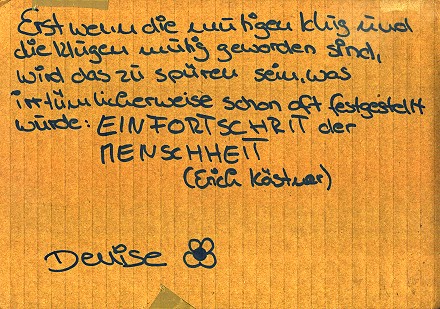 Erst wenn die mutigen klug und
die klugen mutig geworden sind,
wird das zu spüren sein, was
irrtümlicherweise schon oft festgestellt
wurde: EIN FORTSCHRITT der
MENSCHHEIT
(Erich Kästner)
Denise